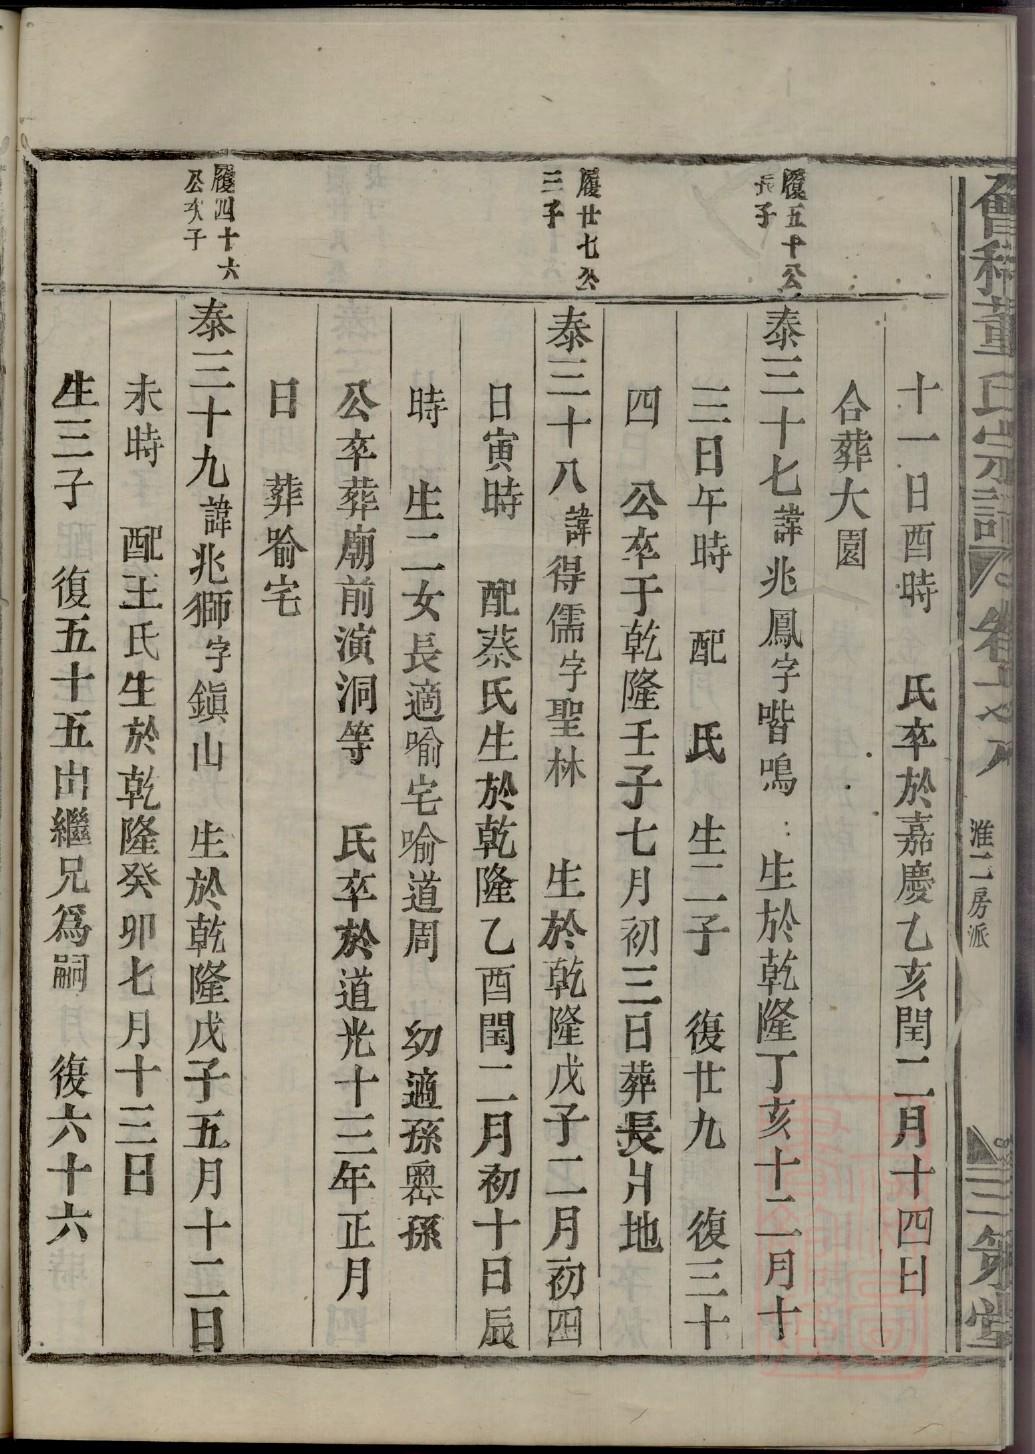 會稽董氏宗譜
卷
淮二房派
三策堂
十一日酉時　氏卒於嘉慶乙亥閏二月十四日
合葬大園
履五十公
長子
泰三十七諱兆鳳字喈鳴　生於乾隆丁亥十二月十
三日午時　配　氏　生二子　復廿九　復三十
四　公卒于乾隆壬子七月初三日葬長爿地
履廿七公
三子
泰三十八諱得儒字聖林　生於乾隆戊子二月初四
日寅時　配蔡氏生於乾隆乙酉閏二月初十日辰
時　生二女長適喻宅喻道周　幼適孫嶴孫
公卒葬廟前演洞等　氏卒於道光十三年正月
日　葬喻宅
履四十六
公次子
泰三十九諱兆獅字鎮山　生於乾隆戊子五月十二日
未時　配王氏生於乾隆癸卯七月十三日
生三子　復五十五出繼兄爲嗣　復六十六